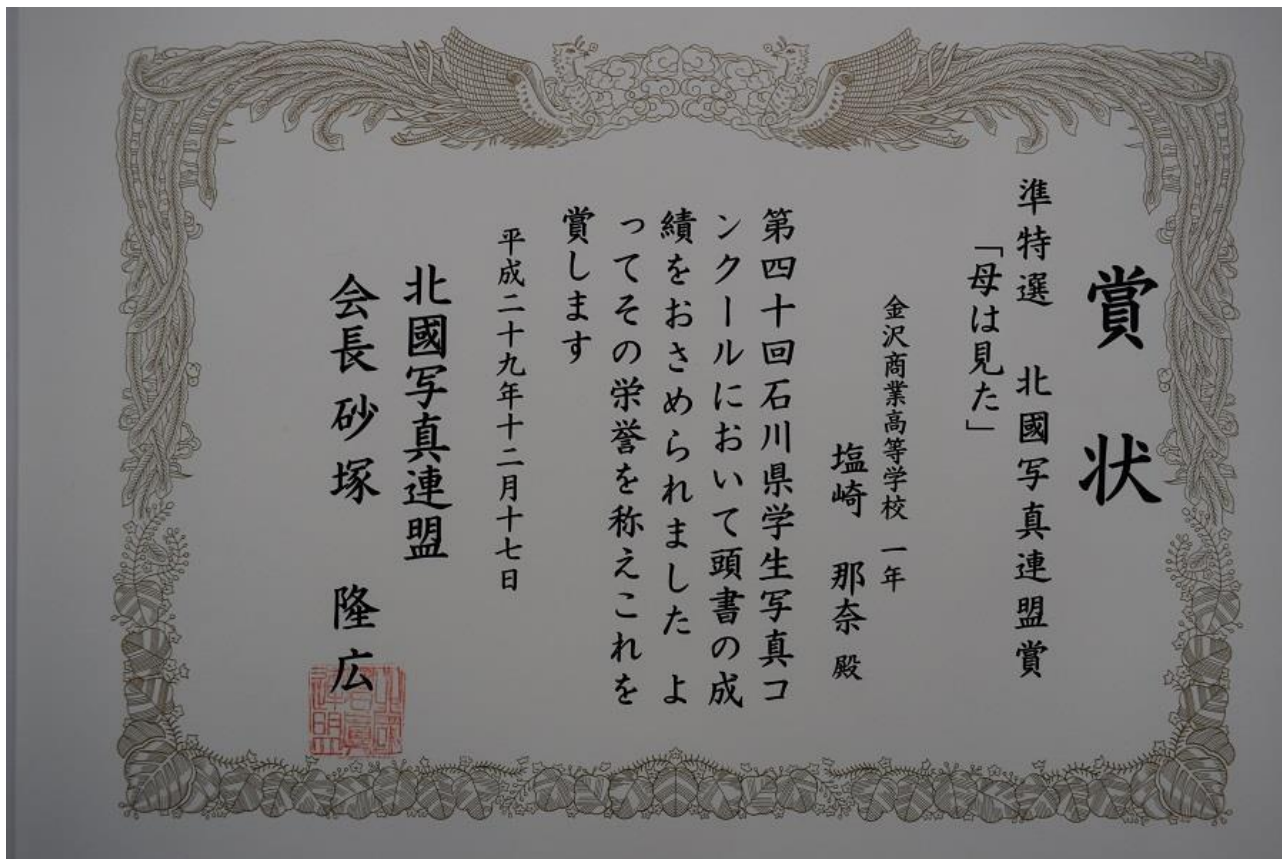 賞状
準特選　北國写真連盟賞
「母は見た」
金沢商業高等学校　一年
塩崎　那奈　殿
第四十回石川県学生写真コ
ンクールにおいて頭書の成
績をおさめられました　よ
ってその栄誉を称えこれを
賞します
平成二十九年十二月十七日
北國写真連盟
会長　砂塚　隆広